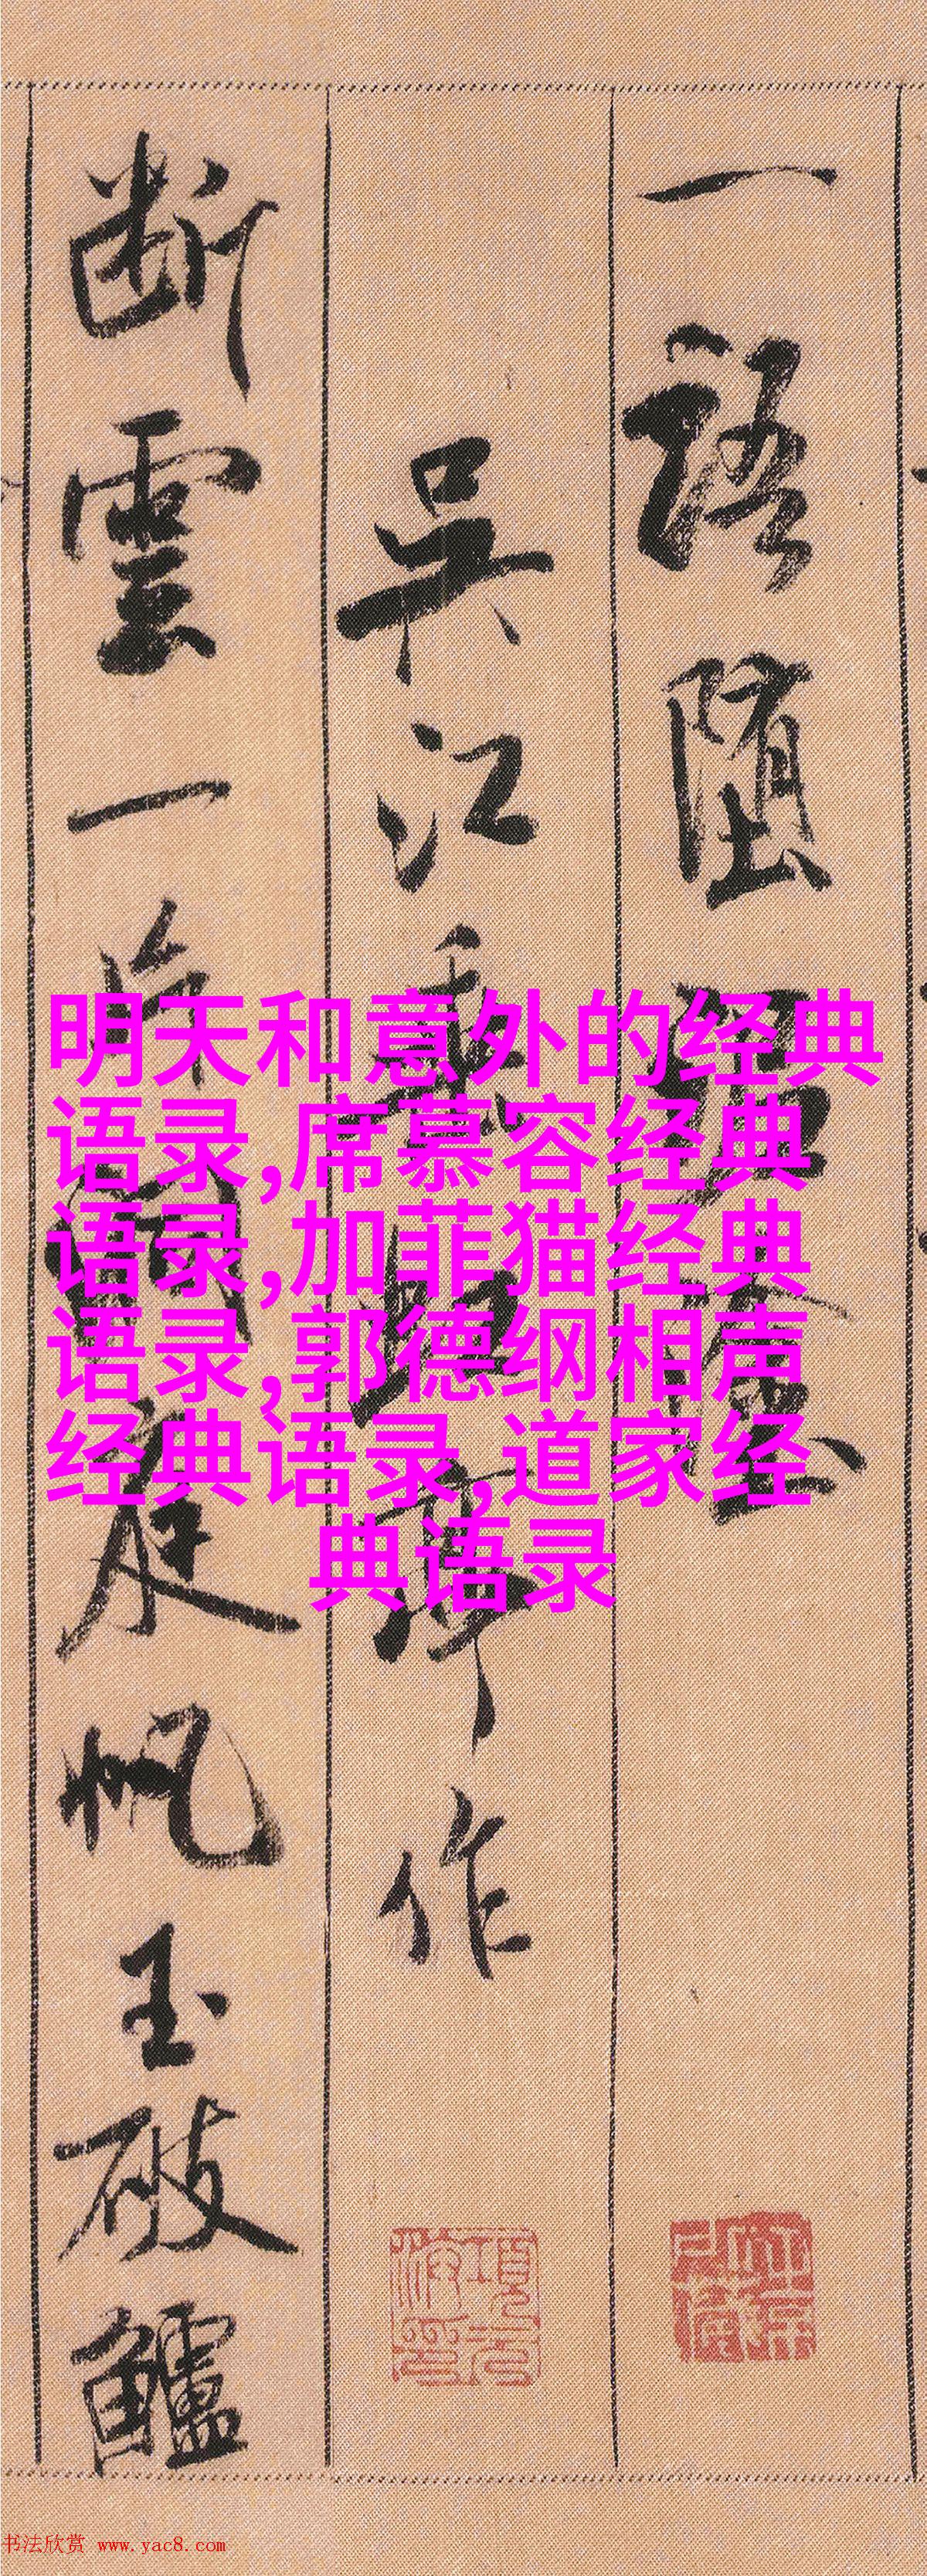 一語墮泥塗
吳江垂虹亭作
断雲一片洞庭帆玉破鱸
明天和意外的经典
语录,席慕容经典
语录,加菲猫经典
语录,郭德纲相声
经典语录,道家经
典语录
书法欣赏 www.yac8.com